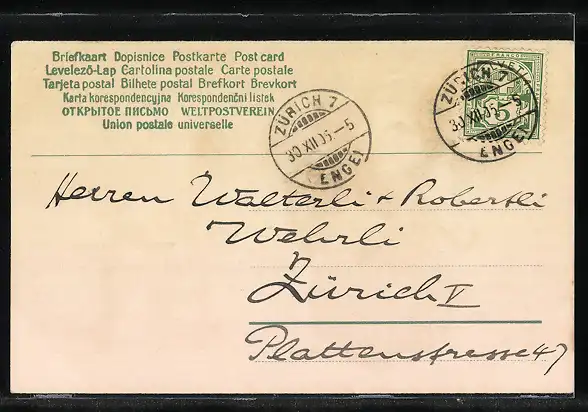 Briefkaart Dopisnice Postkarte Post card
Levelező-Lap Cartolina postale Carte postale
Tarjeta postal Bilhete postal Brefkort Brevkort
Karta korespondencyjna Korespondenčni listek
ОТКРЫТОЕ ПИСЬМО WELTPOSTVEREIN
Union postale universelle
ZÜRICH 7
30.XII.05.-5
(ENGE)
FRANCO
5
ZÜRICH 7
30.XII.05.-5
(ENGE)
Herren Walterli & Robertli
Wehrli
Zürich V
Plattenstrasse 47